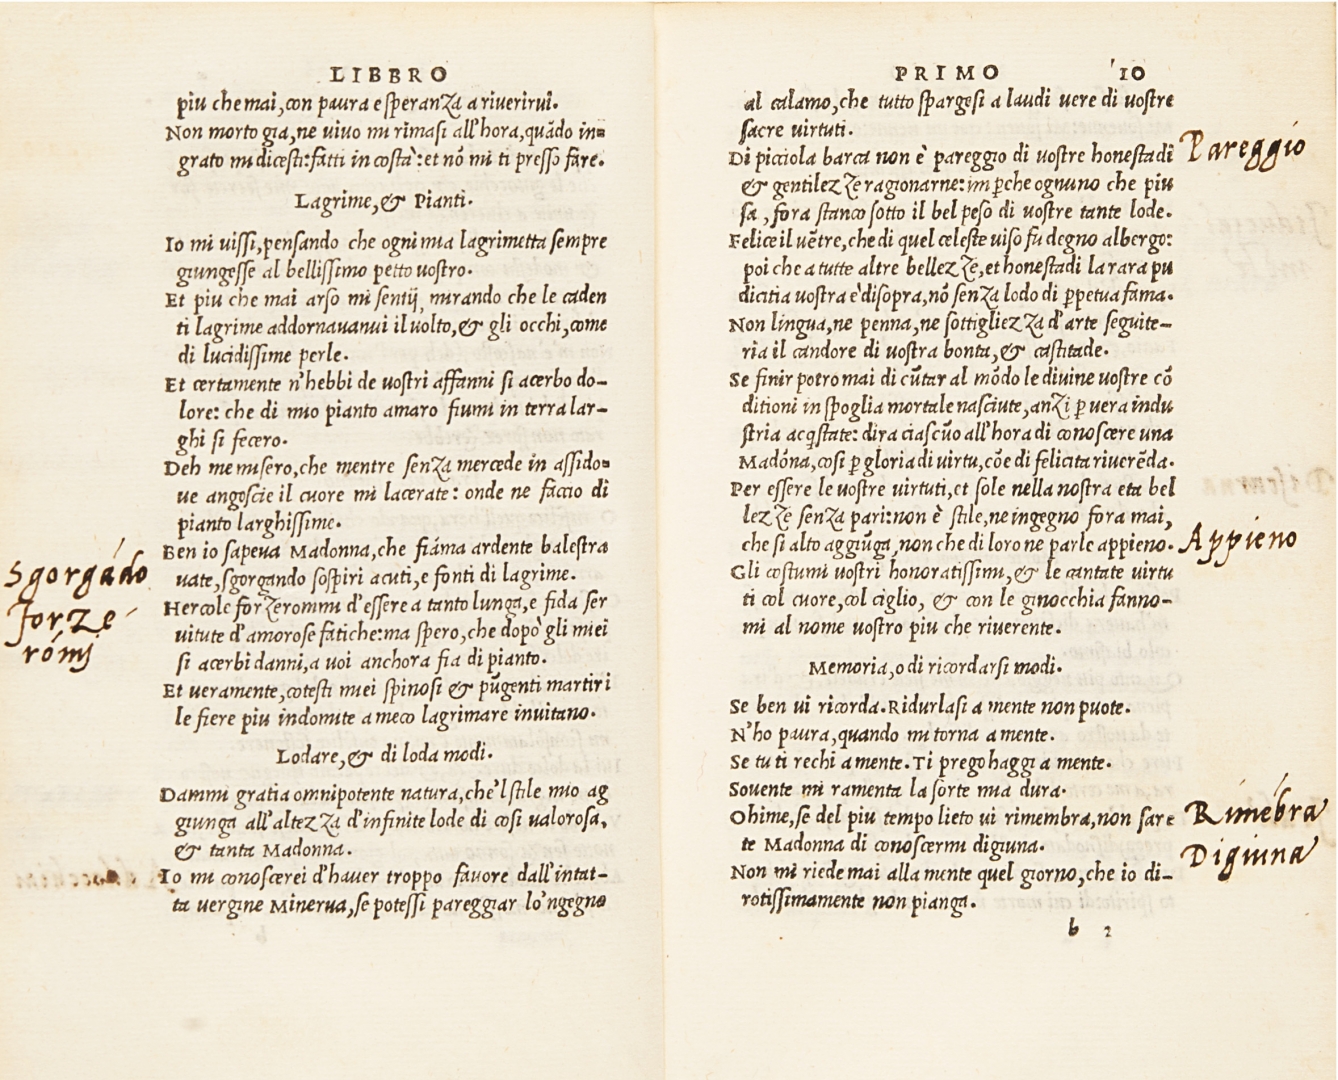 LIBBRO
piu che mai, con paura e speranza a riverirui.
Non morto gia, ne uiuo mi rimasi all'hora, quãdo in=
grato mi dicesti: fatti in costà: et nõ mi ti presso fare.
Lagrime, & Pianti.
Io mi uissi, pensando che ogni mia lagrimetta sempre
giungesse al bellissimo petto uostro.
Et piu che mai arso mi sentij, mirando che le caden
ti lagrime addornauanui il uolto, & gli occhi, come
di lucidissime perle.
Et certamente n'hebbi de uostri affanni si acerbo do-
lore: che di mio pianto amaro fiumi in terra lar-
ghi si fecero.
Deh me misero, che mentre senza mercede in assido=
ue angoscie il cuore mi lacerate: onde ne faccio di
pianto larghissime.
Ben io sapeua Madonna, che fiãma ardente balestra
uate, sgorgando sospiri acuti, e fonti di lagrime.
Hercole forzerommi d'essere a tanto lunga, e fida ser
uitute d'amorose fatiche: ma spero, che dopò gli miei
si acerbi danni, a uoi anchora fia di pianto.
Et ueramente, cotesti miei spinosi & pũgenti martiri
le fiere piu indomite a meco lagrimare inuitano.
Lodare, & di loda modi.
Dammi gratia omnipotente natura, che'l stile mio ag
giunga all'altezza d'infinite lode di cosi ualorosa,
& tanta Madonna.
Io mi conoscerei d'hauer troppo fauore dall'intat-
ta uergine Minerua, se potessi pareggiar lo'ngegno
Sgorgãdo
forzé
rómj
PRIMO 10
al calamo, che tutto spargesi a laudi uere di uostre
sacre uirtuti.
Di picciola barca non è pareggio di uostre honestadi
& gentilezze ragionarne: im ꝑche ognuno che piu
sa, fora stanco sotto il bel peso di uostre tante lode.
Felice il uẽtre, che di quel celeste uiso fu degno albergo:
poi che a tutte altre bellezze, et honestadi la rara pu
dicitia uostra è disopra, nõ senza lodo di ꝑpetua fama.
Non lingua, ne penna, ne sottigliezza d'arte seguite-
ria il candore di uostra bonta, & castitade.
Se finir potro mai di cũtar al mõdo le diuine uostre cõ
ditioni in spoglia mortale nasciute, anzi ꝑ uera indu
stria acq̃state: dira ciascũo all'hora di conoscere una
Madõna, cosi ꝑ gloria di uirtu, cõe di felicita riuerẽda.
Per essere le uostre uirtuti, et sole nella nostra eta bel
lezze senza pari: non è stile, ne ingegno fora mai,
che si alto aggiũga, non che di loro ne parle appieno.
Gli costumi uostri honoratissimi, & le cantate uirtu
ti col cuore, col ciglio, & con le ginocchia fanno-
mi al nome uostro piu che riuerente.
Memoria, o di ricordarsi modi.
Se ben ui ricorda. Ridurlasi a mente non puote.
N'ho paura, quando mi torna a mente.
Se tu ti rechi a mente. Ti prego haggi a mente.
Souente mi ramenta la sorte mia dura.
Ohime, se del piu tempo lieto ui rimembra, non sare
te Madonna di conoscermi digiuna.
Non mi riede mai alla mente quel giorno, che io di-
rotissimamente non pianga.
b 2
Pareggio
Appieno
Rimẽbra
Digiuna